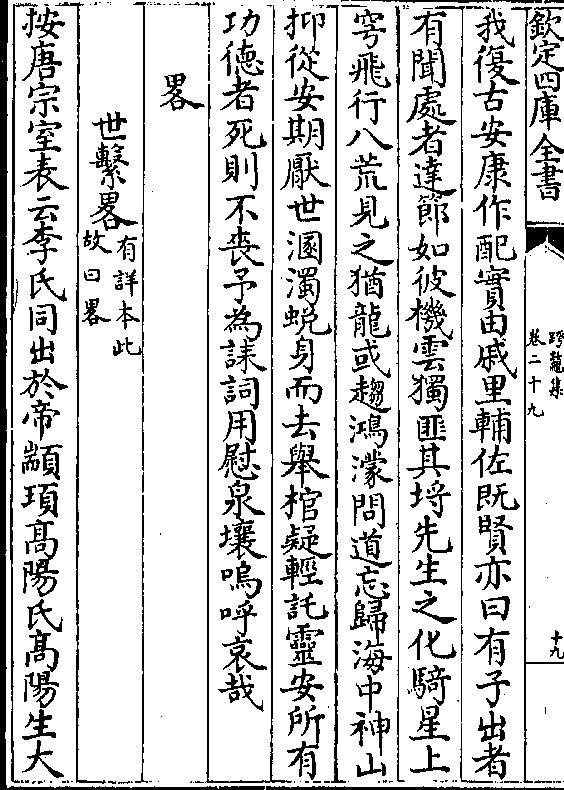 欽定四庫全書
跨鼇集
卷二十九
十九
我復古安康作配實由戚里輔佐既賢亦曰有子出者
有聞處者達節如彼機雲獨匪其埒先生之化騎星上
穹飛行八荒見之猶龍或趨鴻濛問道忘歸海中神山
抑從安期厭世溷濁蛻身而去舉棺疑輕託靈安所有
功德者死則不喪予為誄詞用慰泉壤嗚呼哀哉
畧
世繫畧有詳本此
故曰畧
按唐宗室表云李氏同出於帝顓頊高陽氏高陽生大